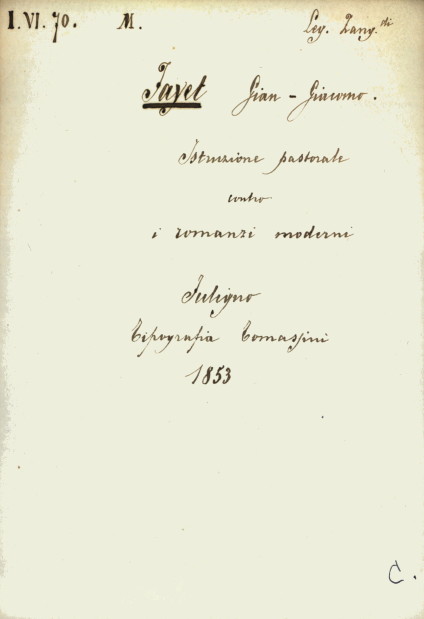 I. VI. 70. M. Leg. Zang.di
Fayet Gian - Giacomo.
Istruzione pastorale
contro
i romanzi moderni
Fuligno
Tipografia Tomassini
1853
C.